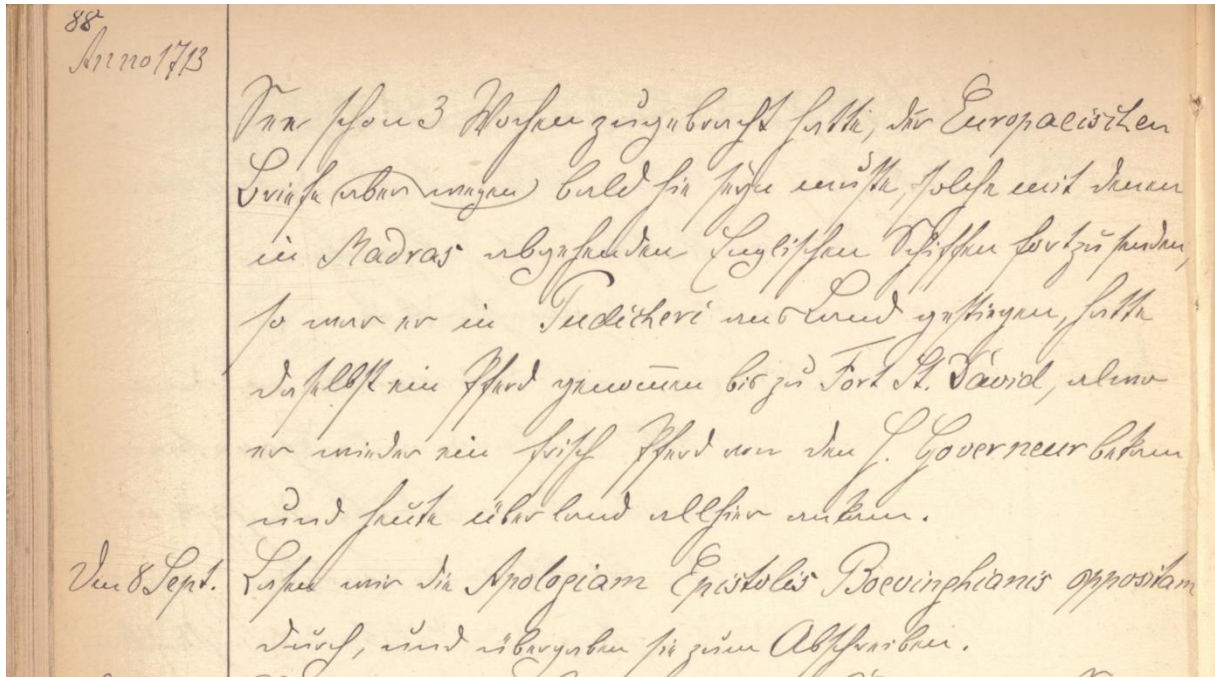 88
Anno 1713
See schon 3 Wochen zugebracht hatte, der Europaeischen
Briefe aber wegen bald hie seyn muste, solche mit denen
in Madras abgehenden Englischen Schiffen fortzusenden,
so war er in Pudicheri ans Land gestiegen, hatte
daselbst ein Pferd genommen bis zu Fort St. David, alwo
er wieder ein frisch Pferd von den H. Governeur bekam
und heute über land allhier ankam.
Den 8 Sept. Lasen wir die Apologiam Epistolis Boevinghianis oppositam
durch, und übergaben sie zum Abschreiben.